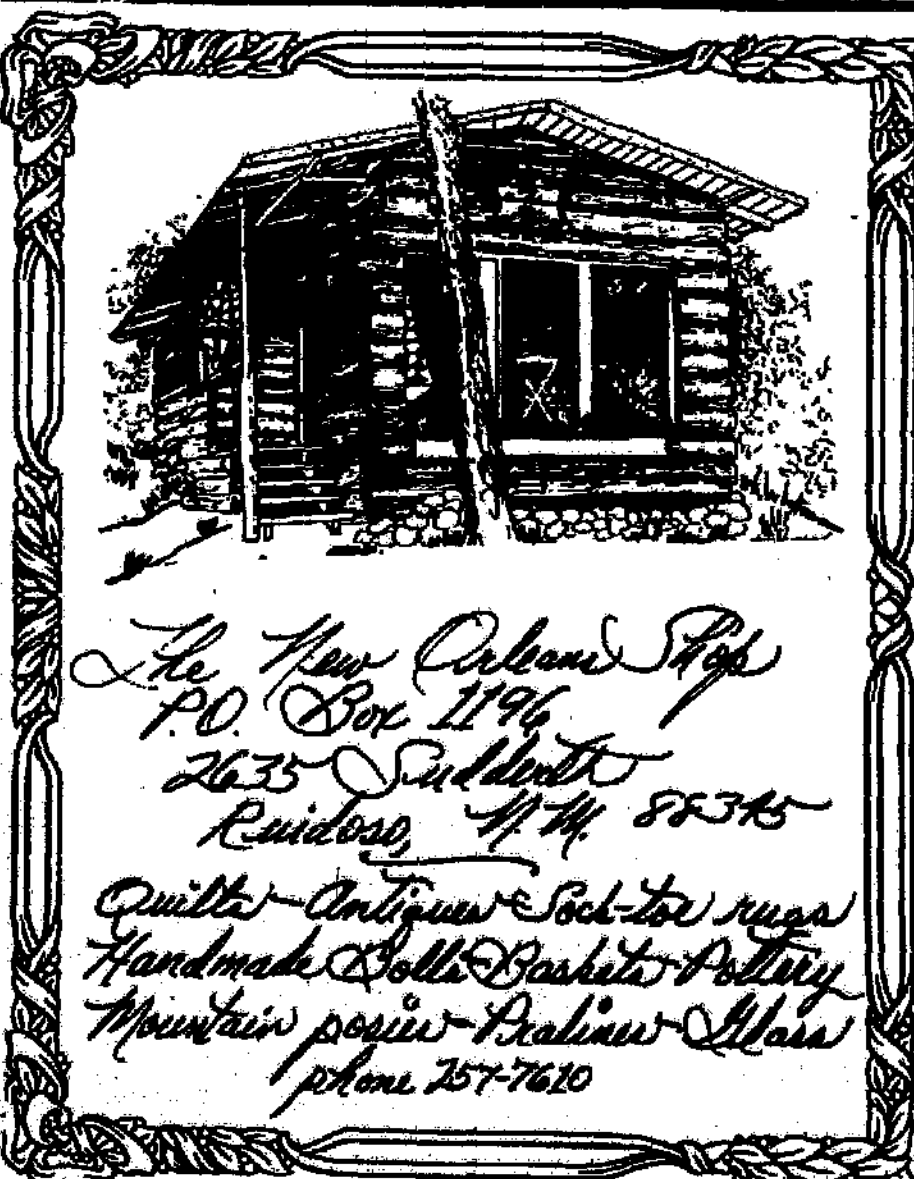 The New Orleans Shop
P.O. Box 1196
2635 Sudderth
Ruidoso, N.M. 88345
Quilts-Antiques-Sock-toe rugs
Handmade Dolls-Baskets-Pottery
Mountain posies-Pralines-Glass
phone 257-7610